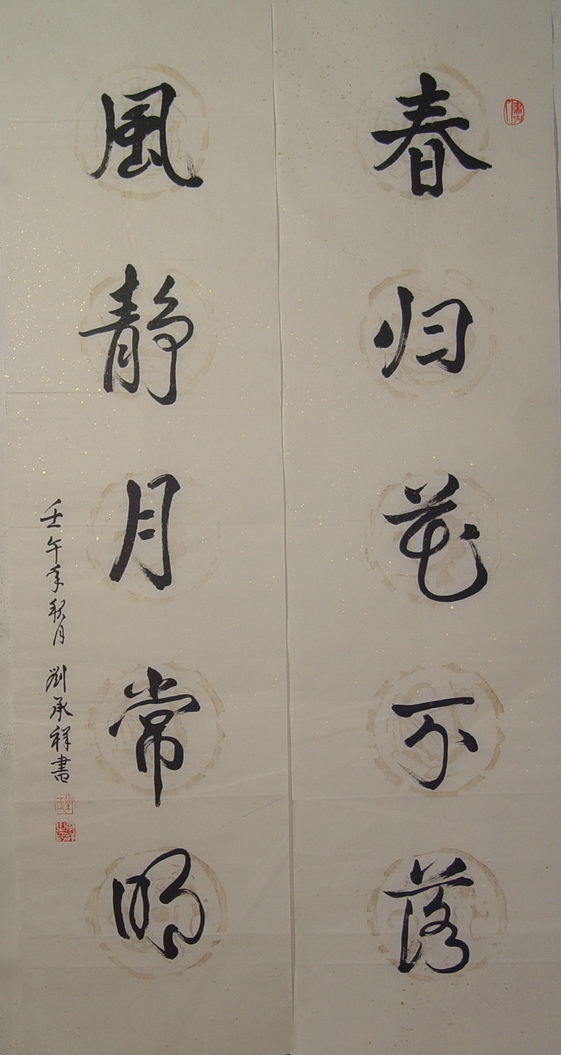 春归花不落
風静月常明
壬午年秋月 劉承祥書